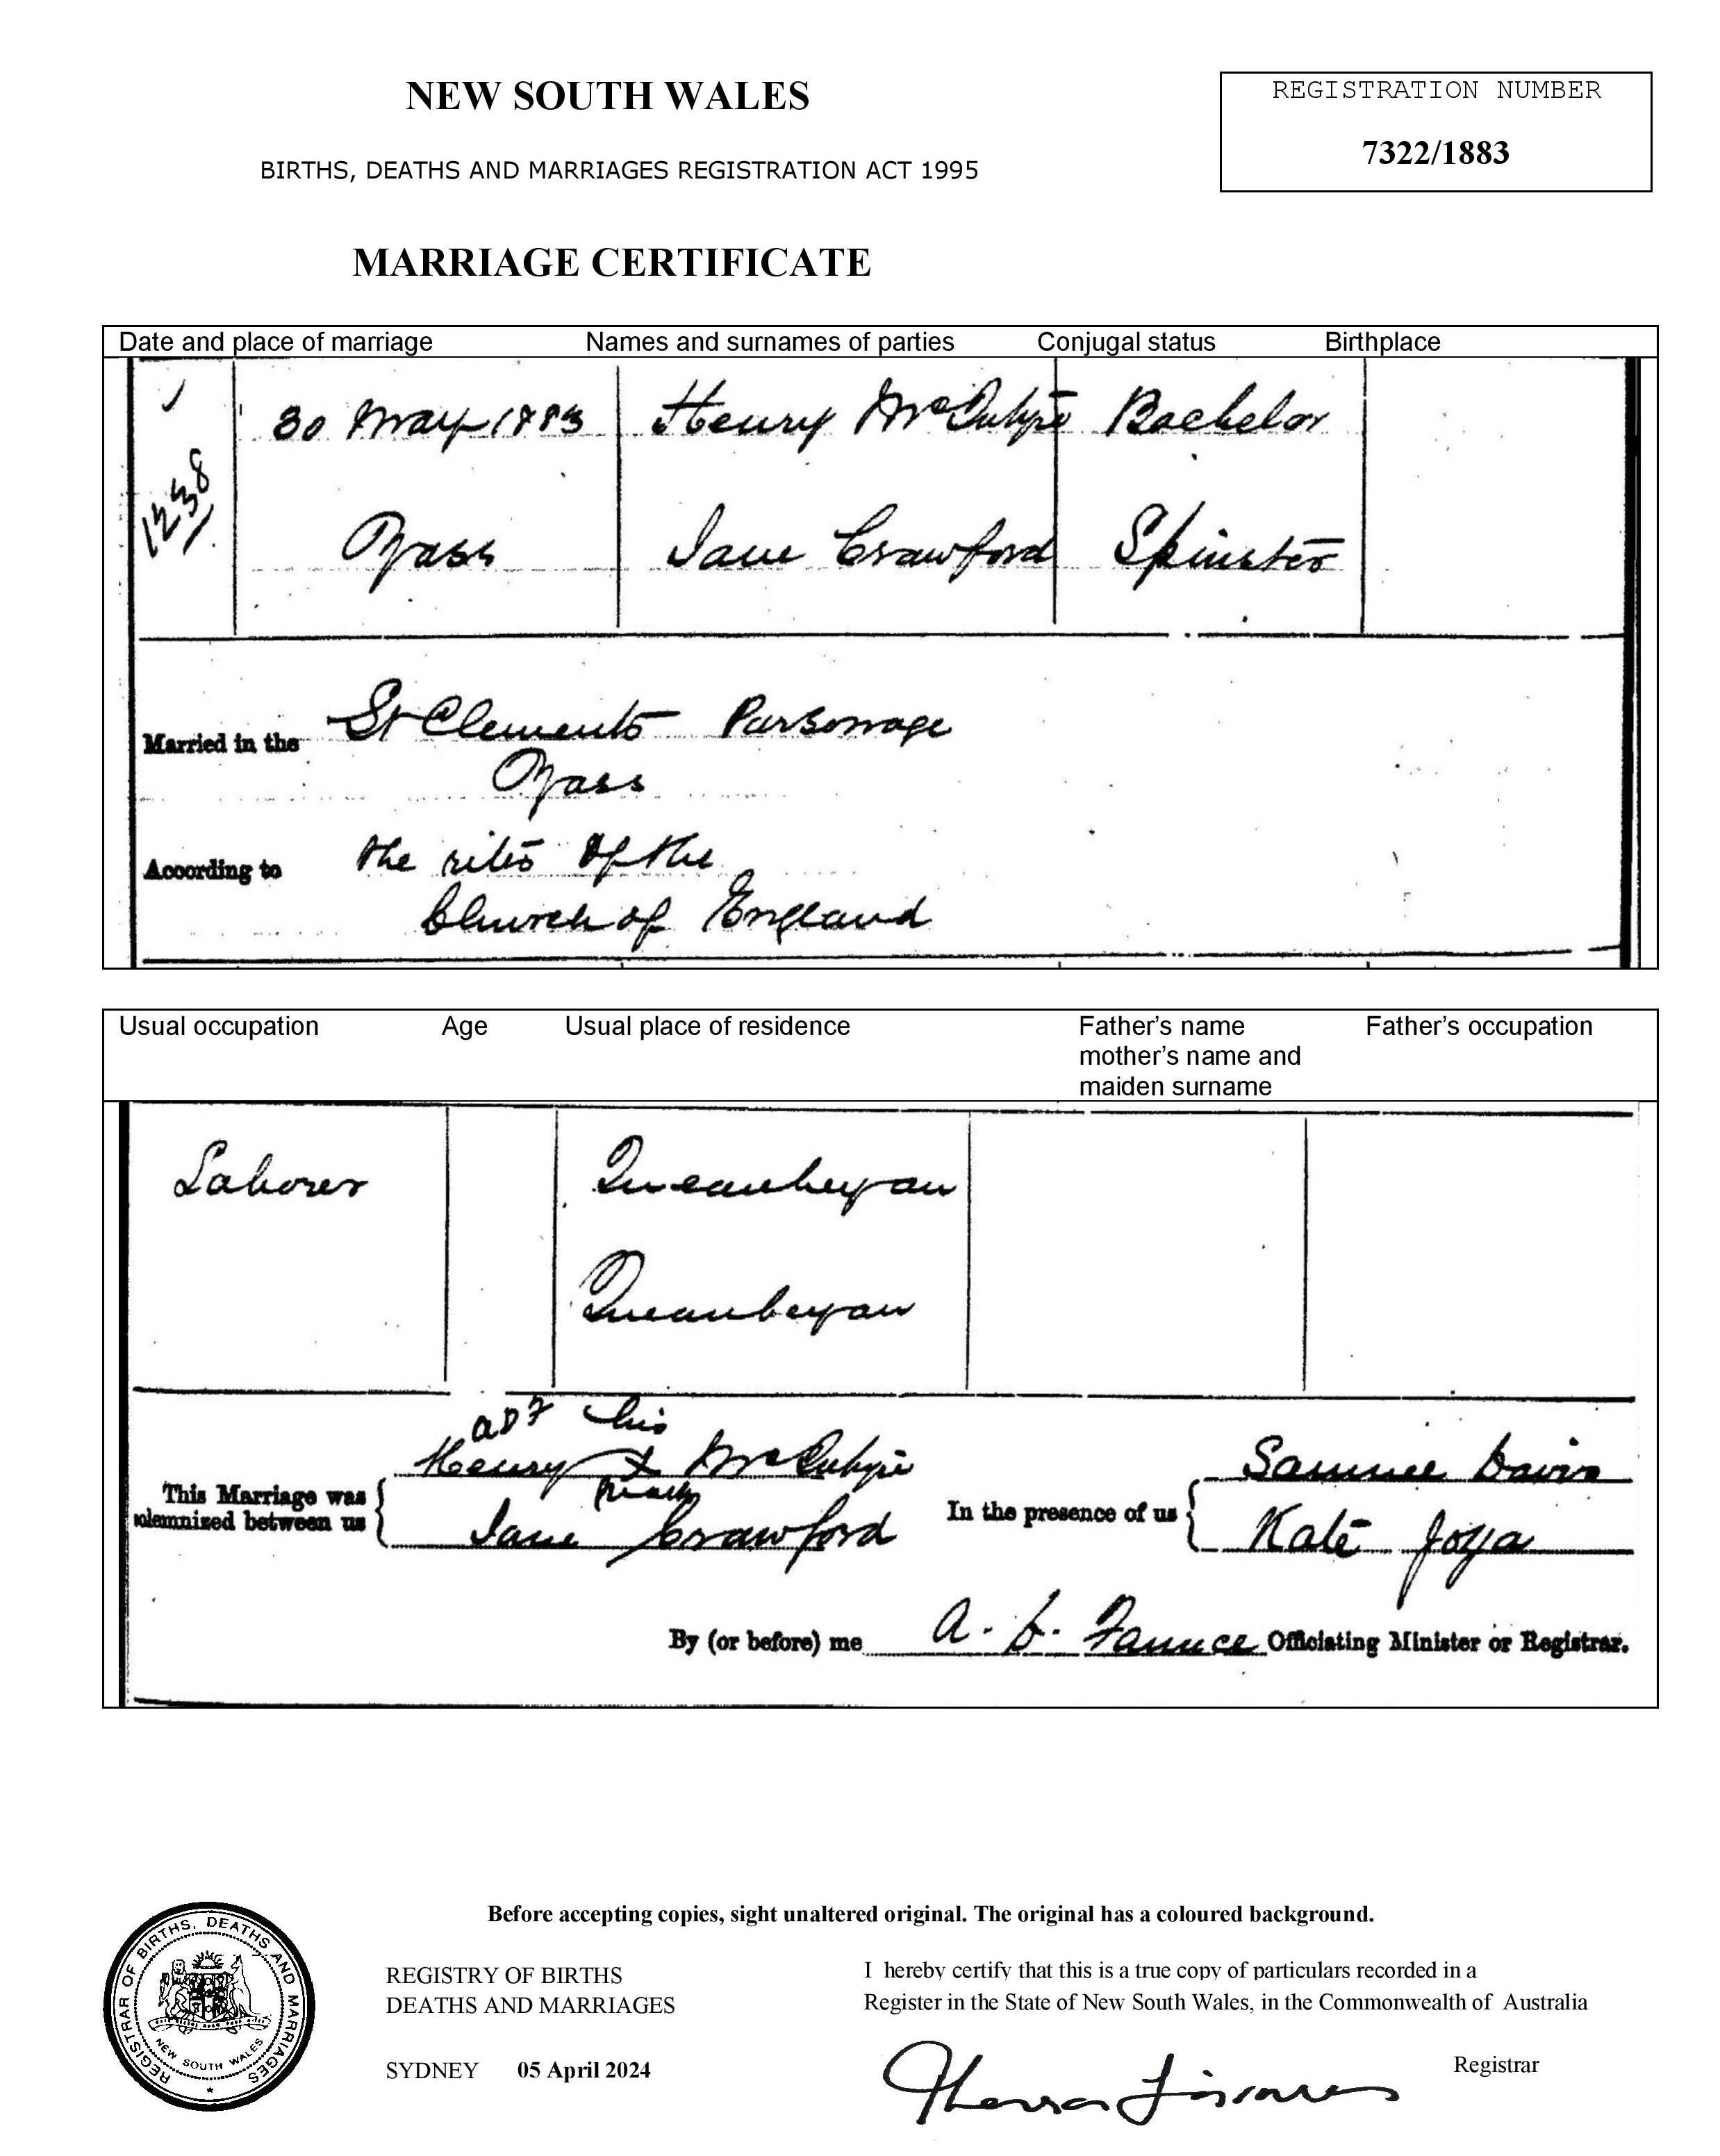 NEW SOUTH WALES
REGISTRATION NUMBER
7322/1883
BIRTHS, DEATHS AND MARRIAGES REGISTRATION ACT 1995
MARRIAGE CERTIFICATE
Date and place of marriage Names and surnames of parties Conjugal status Birthplace
30 May 1883 Henry McIntyre Bachelor
1238
Yass Jane Crawford Spinster
Married in the St Clements Parsonage
Yass
According to the rites of the
Church of England
Usual occupation Age Usual place of residence Father's name Father's occupation
mother's name and
maiden surname
Laborer Queanbeyan
Queanbeyan
his
Henry x McIntyre Samuel Davis
mark
This Marriage was
solemnized between us In the presence of us
Jane Crawford Kate
By (or before) me A. D. Faunce Officiating Minister or Registrar.
Before accepting copies, sight unaltered original. The original has a coloured background.
REGISTRAR OF BIRTHS, DEATHS AND MARRIAGES
NEW SOUTH WALES
REGISTRY OF BIRTHS
DEATHS AND MARRIAGES
SYDNEY 05 April 2024
I hereby certify that this is a true copy of particulars recorded in a
Register in the State of New South Wales, in the Commonwealth of Australia
Registrar